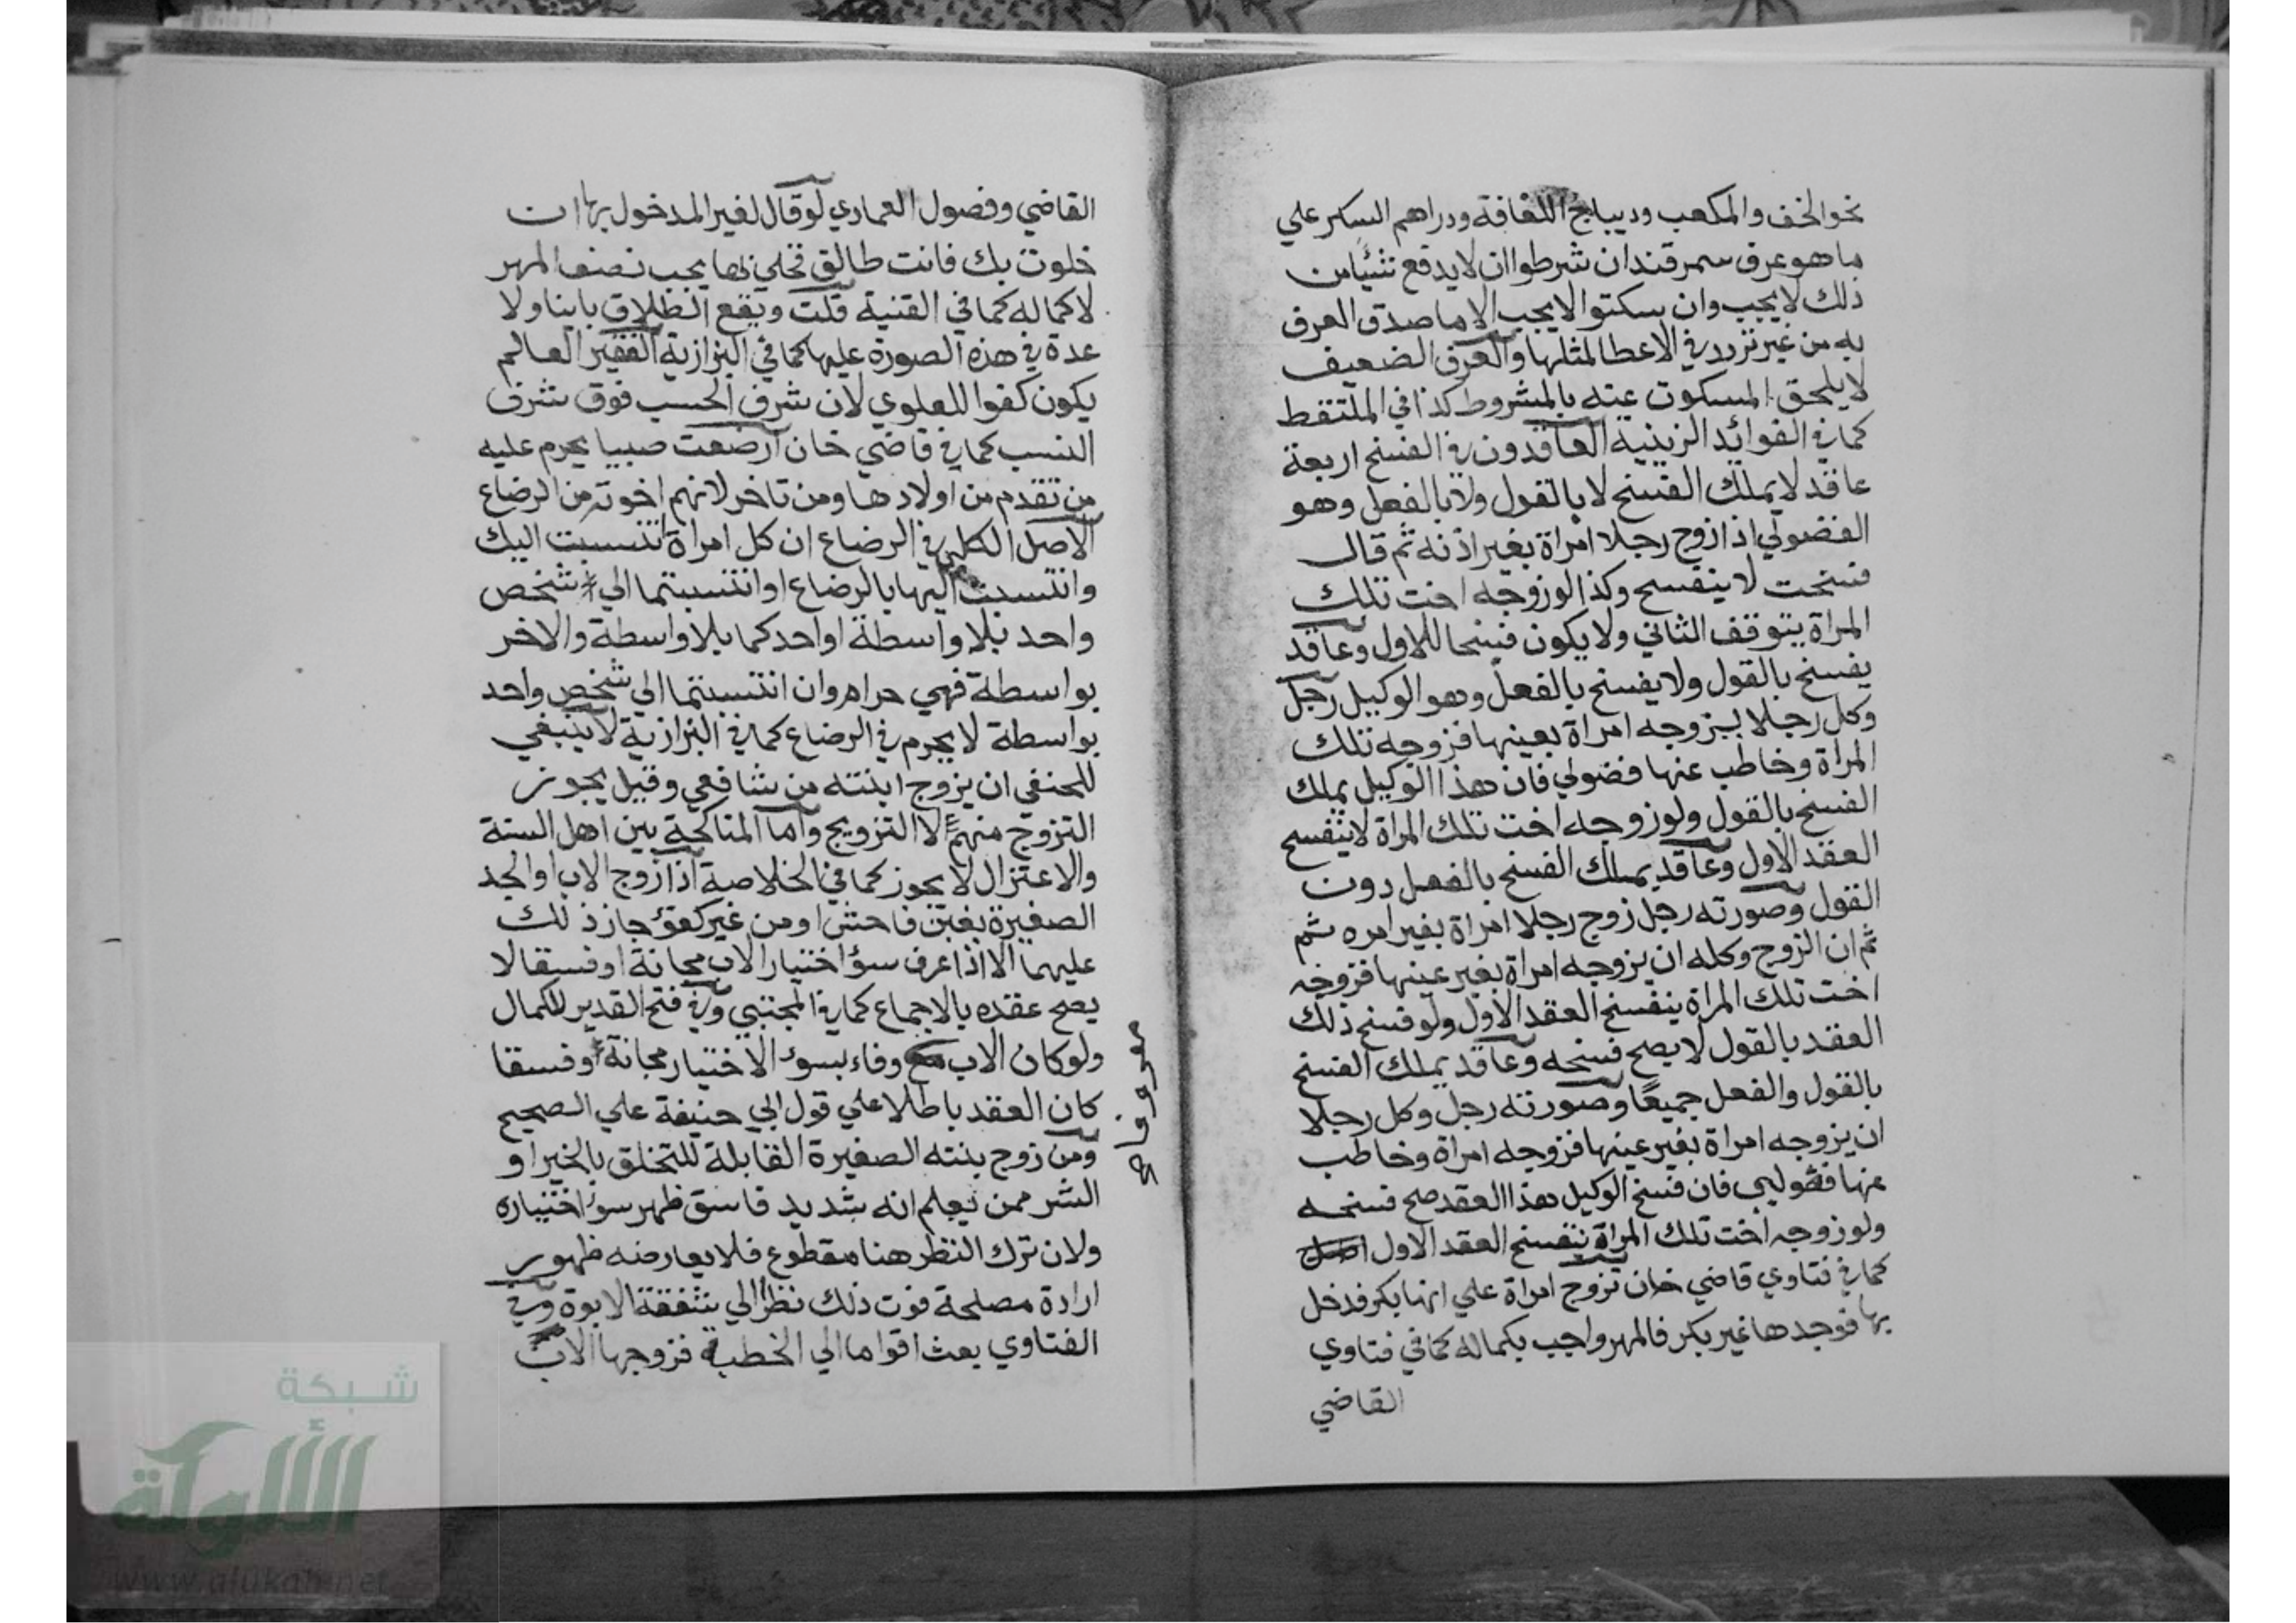 نحو الخف والمكعب وديباج اللفافة ودراهم السكر علي
ما هو عرف سمرقند ان شرطوا ان لا يدفع شئيا من
ذلك لا يجب وان سكتوا لا يجب الا ما صدق العرف
به من غير تردد في الاعطا لمثلها والعرف الضعيف
لا يلحق المسكوت عنه بالمشروط كذا في الملتقط
كما في الفوائد الزينية العاقدون في الفسخ اربعة
عاقد لا يملك الفسخ لا بالقول ولا بالفعل وهو
الفضولي اذا زوج رجلا امراة بغير اذنه ثم قال
فسخت لا ينفسخ وكذا لو زوجه اخت تلك
المراة يتوقف الثاني ولا يكون فسخا للاول وعاقد
يفسخ بالقول ولا يفسخ بالفعل وهو الوكيل رجل
وكل رجلا ليزوجه امراة بعينها فزوجه تلك
المراة وخاطب عنها فضولي فان هذا الوكيل يملك
الفسخ بالقول ولو زوجه اخت تلك المراة لا ينفسخ
العقد الاول وعاقد يملك الفسخ بالفعل دون
القول وصورته رجل زوج رجلا امراة بغير امره ثم
ثم ان الزوج وكله ان يزوجه امراة بغير عينها فزوجه
اخت تلك المراة ينفسخ العقد الاول ولو فسخ ذلك
العقد بالقول لا يصح فسخه وعاقد يملك الفسخ
بالقول والفعل جميعًا وصورته رجل وكل رجلا
ان يزوجه امراة بغير عينها فزوجه امراة وخاطب
عنها فضولي فان فسخ الوكيل هذا العقد صح فسخه
ولو زوجه اخت تلك المراة ينفسخ العقد الاول
كما في فتاوي قاضي خان تزوج امراة علي انها بكر فدخل
بها فوجدها غير بكر فالمهر واجب بكماله كما في فتاوي
القاضي
القاضي وفصول العمادي لو قال لغير المدخول بها ان
خلوت بك فانت طالق فخلي بها يجب نصف المهر
لا كماله كما في القنية قلت ويقع الطلاق باينا ولا
عدة في هذه الصورة عليها كما في البزازية الفقير العالم
يكون كفوا للعلوي لان شرف الحسب فوق شرف
النسب كما في قاضي خان ارضعت صبيا يحرم عليه
من تقدم من اولادها ومن تاخر لانهم اخوته من الرضاع
الاصل الكلي في الرضاع ان كل امراة انتسبت اليك
وانتسبت اليها بالرضاع او انتسبتما الي شخص
واحد بلا واسطة او احدكما بلا واسطة والاخر
بواسطة فهي حرام وان انتسبتما الي شخص واحد
بواسطة لا يحرم في الرضاع كما في البزازية لا ينبغي
للحنفي ان يزوج ابنته من شافعي وقيل يجوز
التزوج منهم لا التزويج واما المناكحة بين اهل السنة
والاعتزال لا يجوز كما في الخلاصة اذا زوج الاب او الجد
الصغيرة بغبن فاحش او من غير كفؤ جاز ذلك
عليهما الا اذا عرف سؤ اختيار الاب مجانة او فسقا لا
يصح عقده بالاجماع كما في المجتبي وفي فتح القدير للكمال
ولو كان الاب وفاء بسوء الاختيار مجانة او فسقا
معروفا
كان العقد باطلا علي قول ابي حنيفة علي الصحيح
ومن زوج بنته الصغيرة القابلة للتخلق بالخير او
الشر ممن يعلم انه شديد فاسق ظهر سوء اختياره
ولان ترك النظر هنا مقطوع فلا يعارضه ظهور
ارادة مصلحة فوت ذلك نظرا الي شفقة الابوة وفي
الفتاوي بعث اقواما الي الخطبة فزوجها الاب
شبكة
الألوكة
www.alukah.net